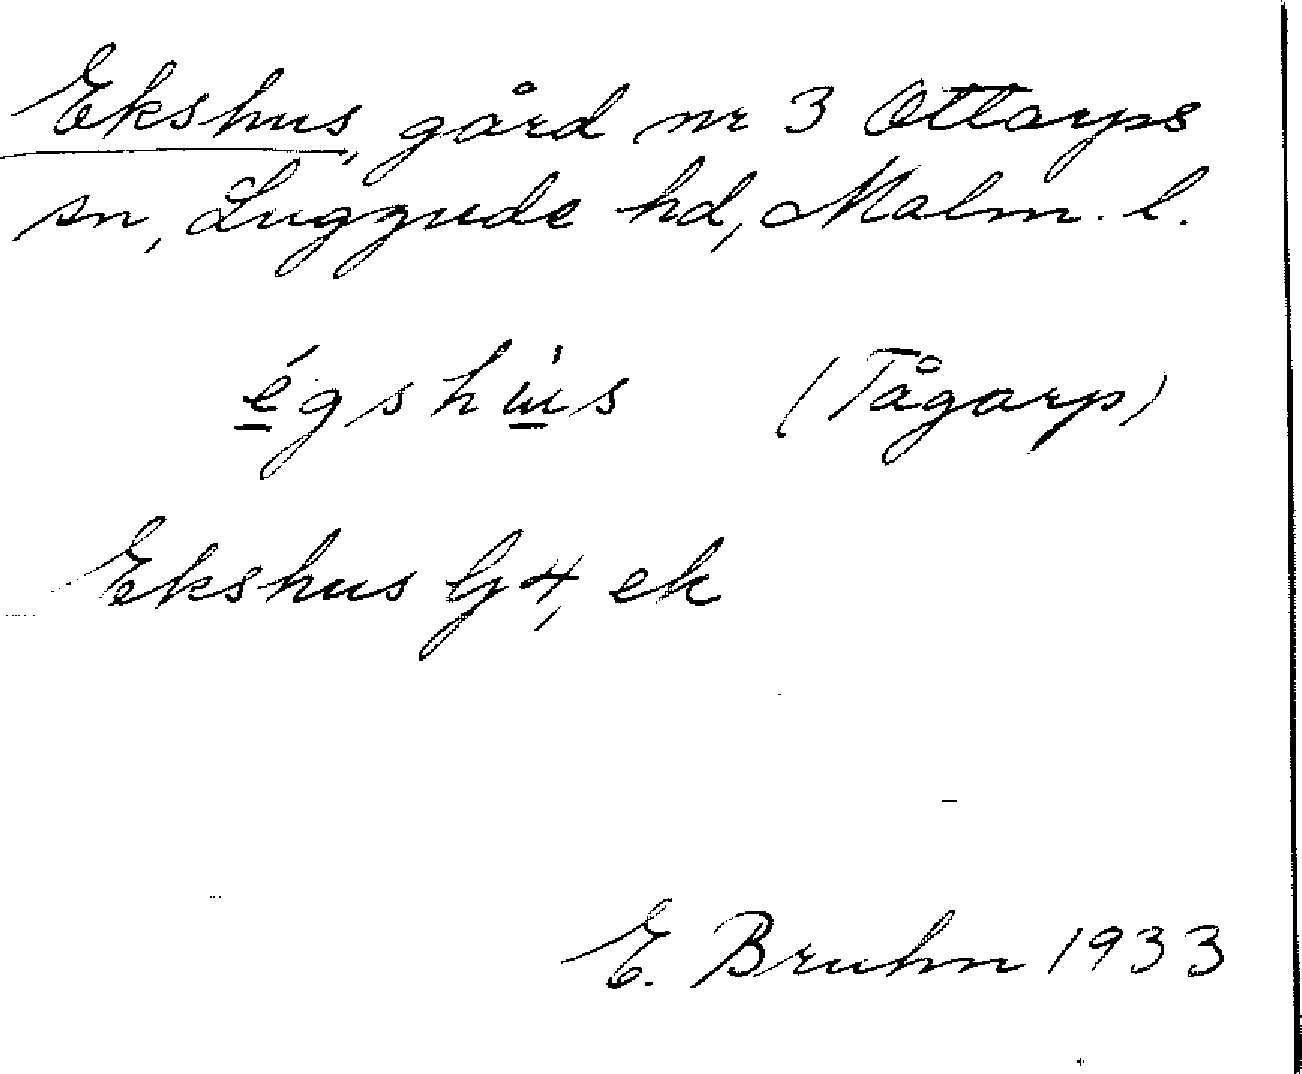 Ekshus, gård nr 3 Ottarps
sn, Luggude hd, Malm. l.
égshus (Tågarp)
Ekshus G4, ek
E. Bruhn 1933